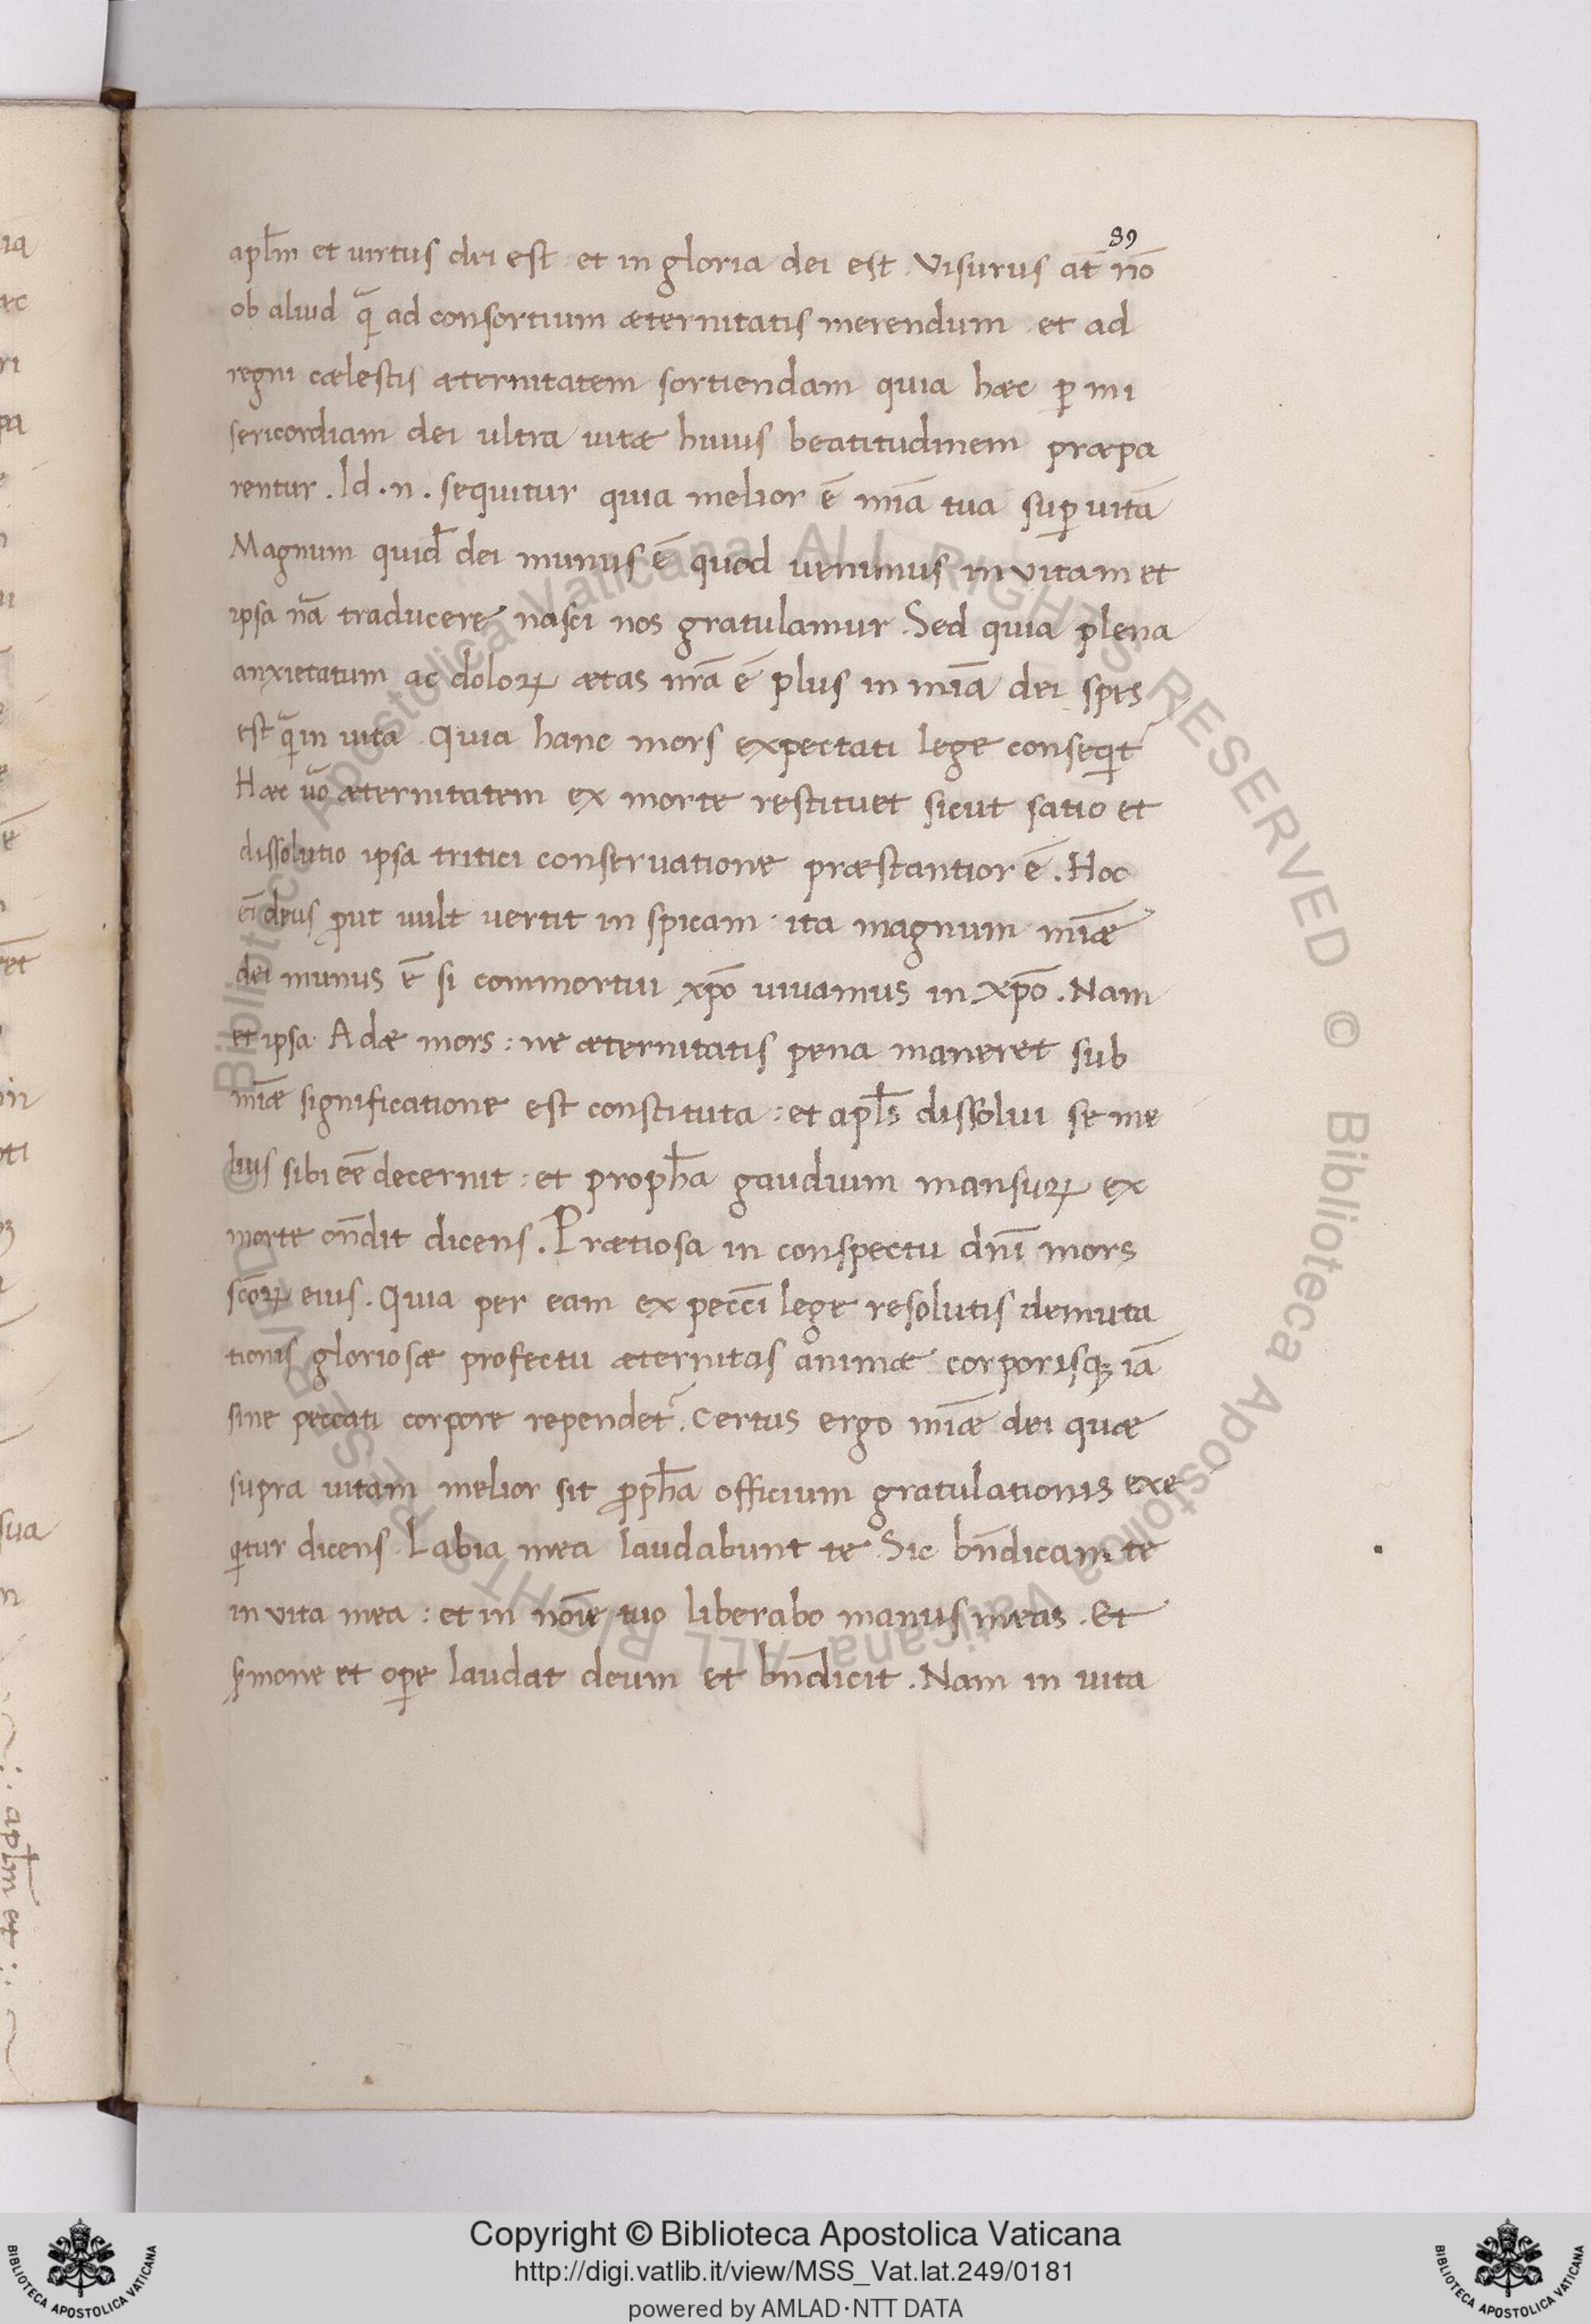 89
apl̄m et virtus dei est et in gloria dei est. Visurus at̄ nō
ob aliud q̃ ad consortium æternitatis merendum et ad
regni cælestis æternitatem sortiendam quia hæc ꝑ mi
sericordiam dei ultra vitæ huius beatitudinem præpa
rentur. Id .n. sequitur quia melior ē mīa tua suꝑ vitā
Magnum quid̄ dei munus ē quod venimus in vitam et
ipsa nā traducere nasci nos gratulamur. Sed quia plena
anxietatum ac doloꝝ ætas nr̄a ē plus in mīa dei spes
est q̃ in vita. Quia hanc mors expectati lege conseqit᷑
Hæc ṽo æternitatem ex morte restituet sicut satio et
dissolutio ipsa tritici conservatione præstantior ē. Hoc
ei deus ꝓut vult vertit in spicam: ita magnum mīæ
dei munus ē si commortui xp̄o vivamus in xp̄o. Nam
et ipsa Adæ mors: ne æternitatis pena maneret sub
mīæ significatione est constituta: et apl̄s dissolvi se me
lius sibi eē decernit: et proph̄a gaudium mansuꝝ ex
morte on̄dit dicens. Prætiosa in conspectu dn̄i mors
sc̄oꝝ eius. Quia per eam ex pecc̄i lege resolutis demuta
tionis gloriosæ profectu æternitas animæ corporisqꝫ iā
sine peccati corpore rependet᷑. Certus ergo mīæ dei quæ
supra vitam melior sit ꝓph̄a officium gratulationis exe
qitur dicens Labia mea laudabunt te Sic bn̄dicam te
in vita mea: et in noīe tuo liberabo manus meas. Et
sꝰmone et oꝑe laudat deum et bn̄dicit. Nam in vita
apl̄m et
Copyright © Biblioteca Apostolica Vaticana
http://digi.vatlib.it/view/MSS_Vat.lat.249/0181
powered by AMLAD·NTT DATA
BIBLIOTECA APOSTOLICA VATICANA
BIBLIOTECA APOSTOLICA VATICANA
© Biblioteca Apostolica Vaticana ALL RIGHTS RESERVED © Biblioteca Apostolica Vaticana ALL RIGHTS RESERVED